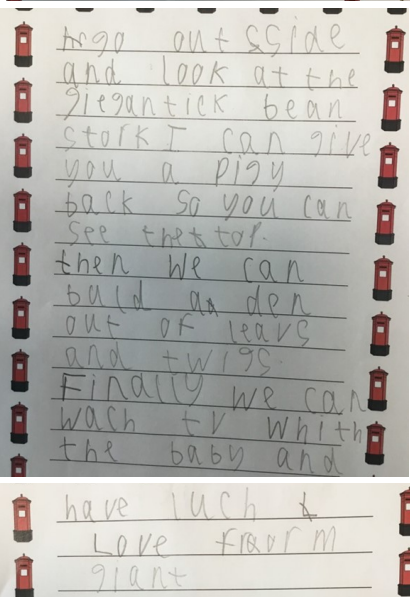 go outsside
and look at the
giegantick bean
stork I can give
you a pigy
back so you can
see the top.
then we can
buld a den
out of leavs
and twigs.
Finally we can
wach tv whith
the baby and
have luch
Love fraorm
giant